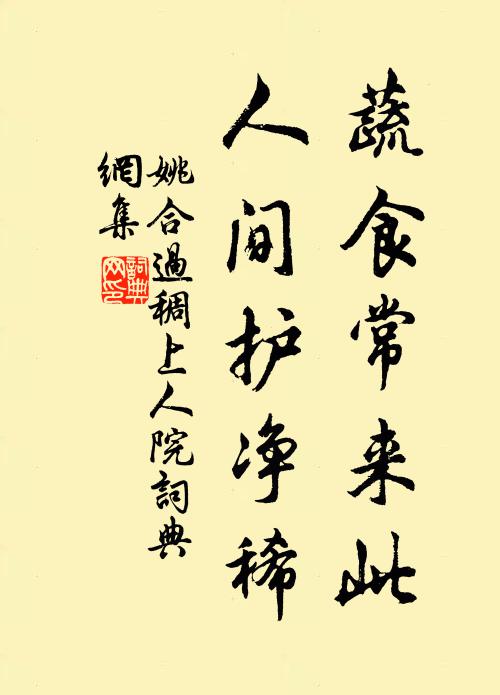 蔬食常来此
人间护净稀
姚合過稠上人院詞典
網集
詞典
网印